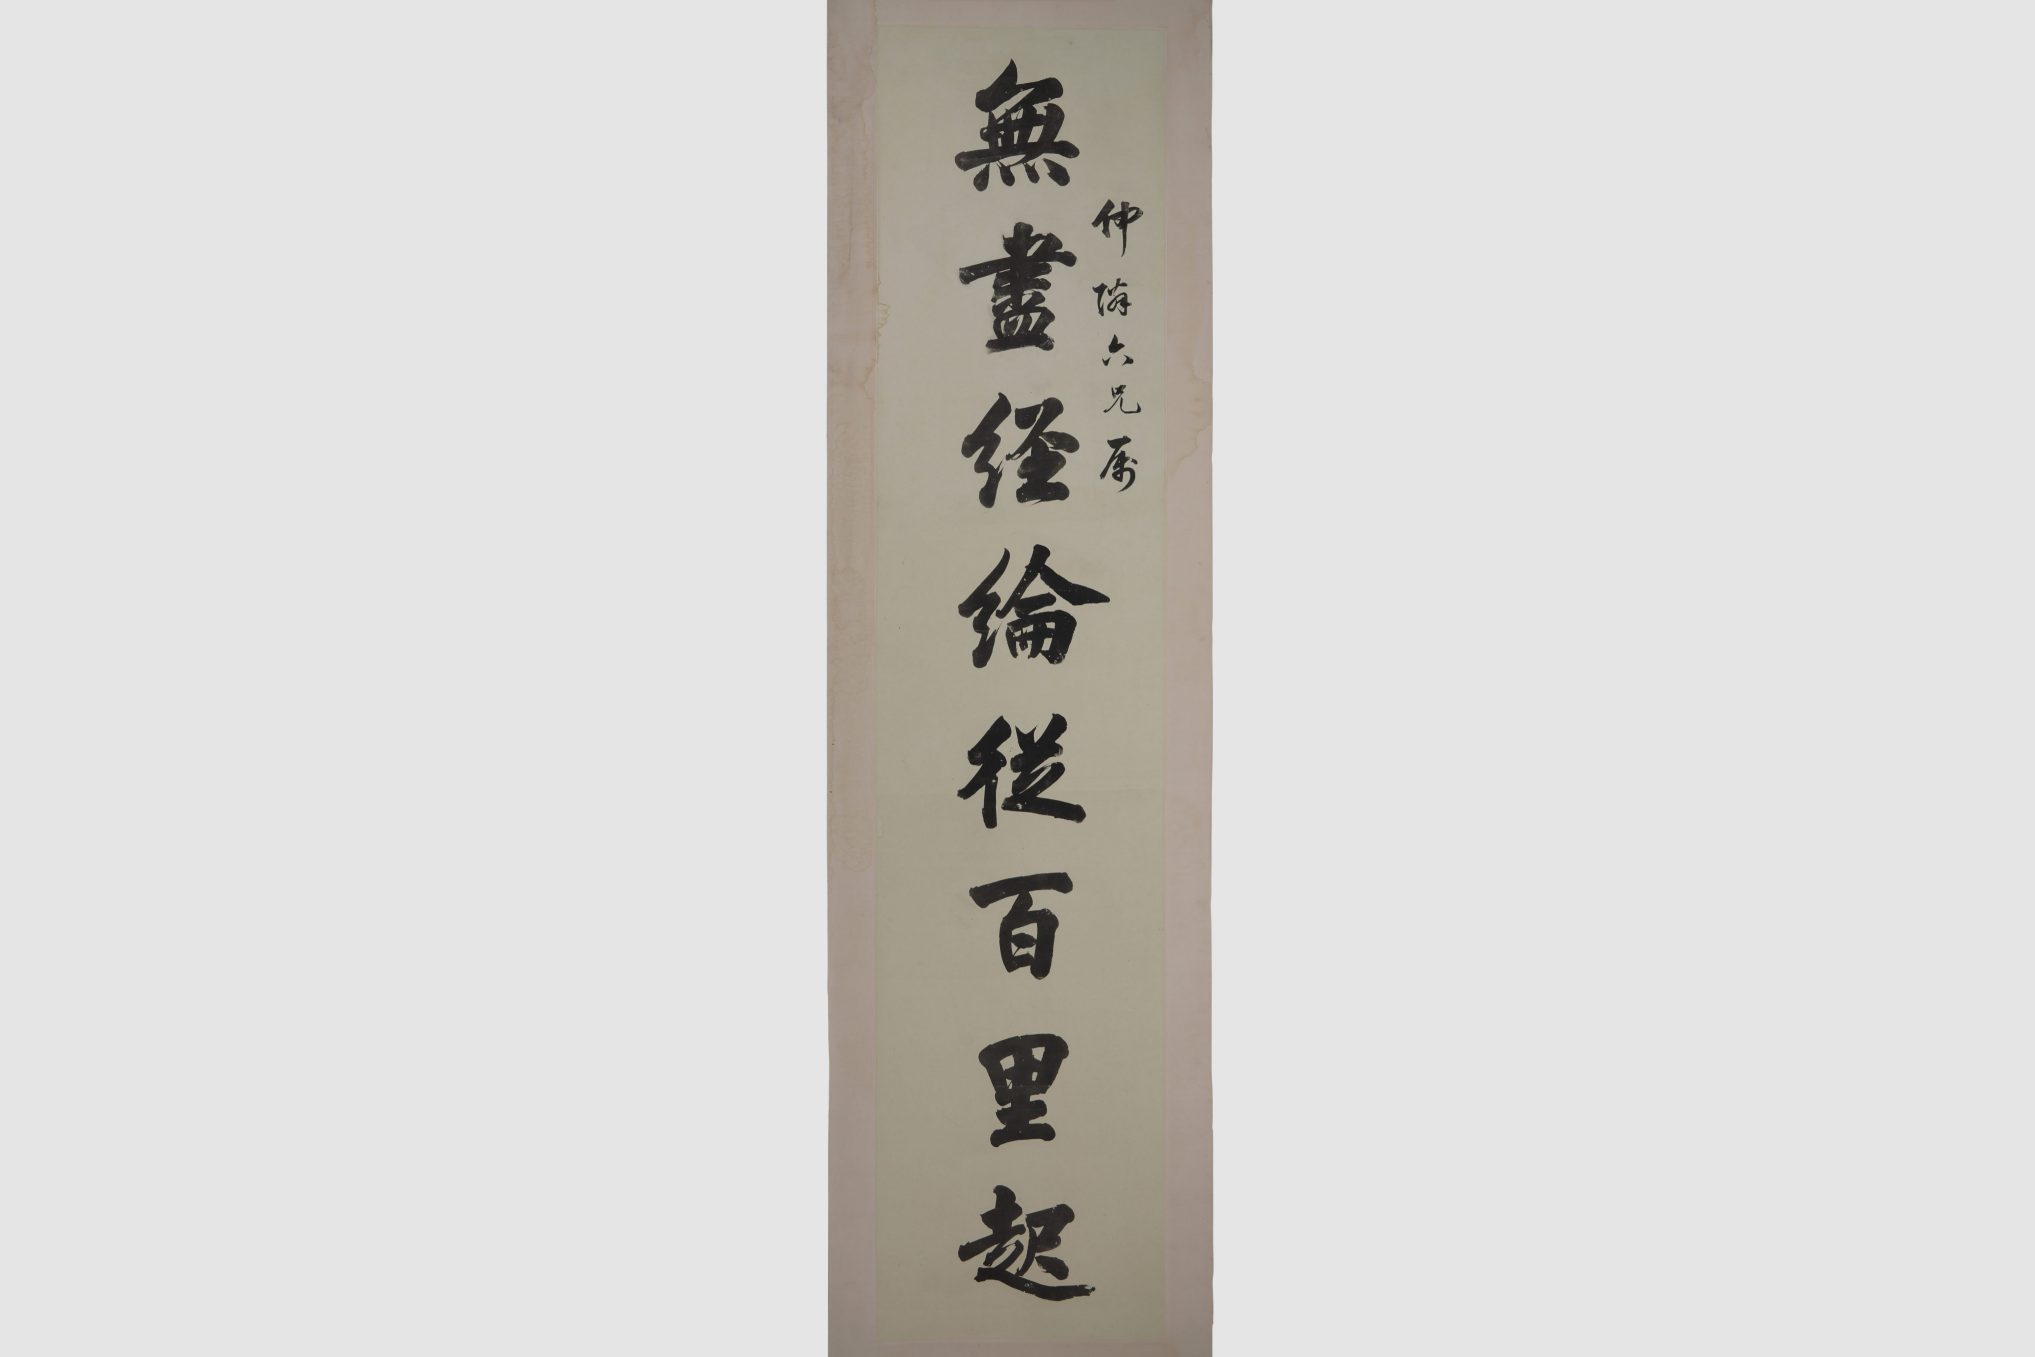 仲㦛六兄属
無盡經綸從百里起